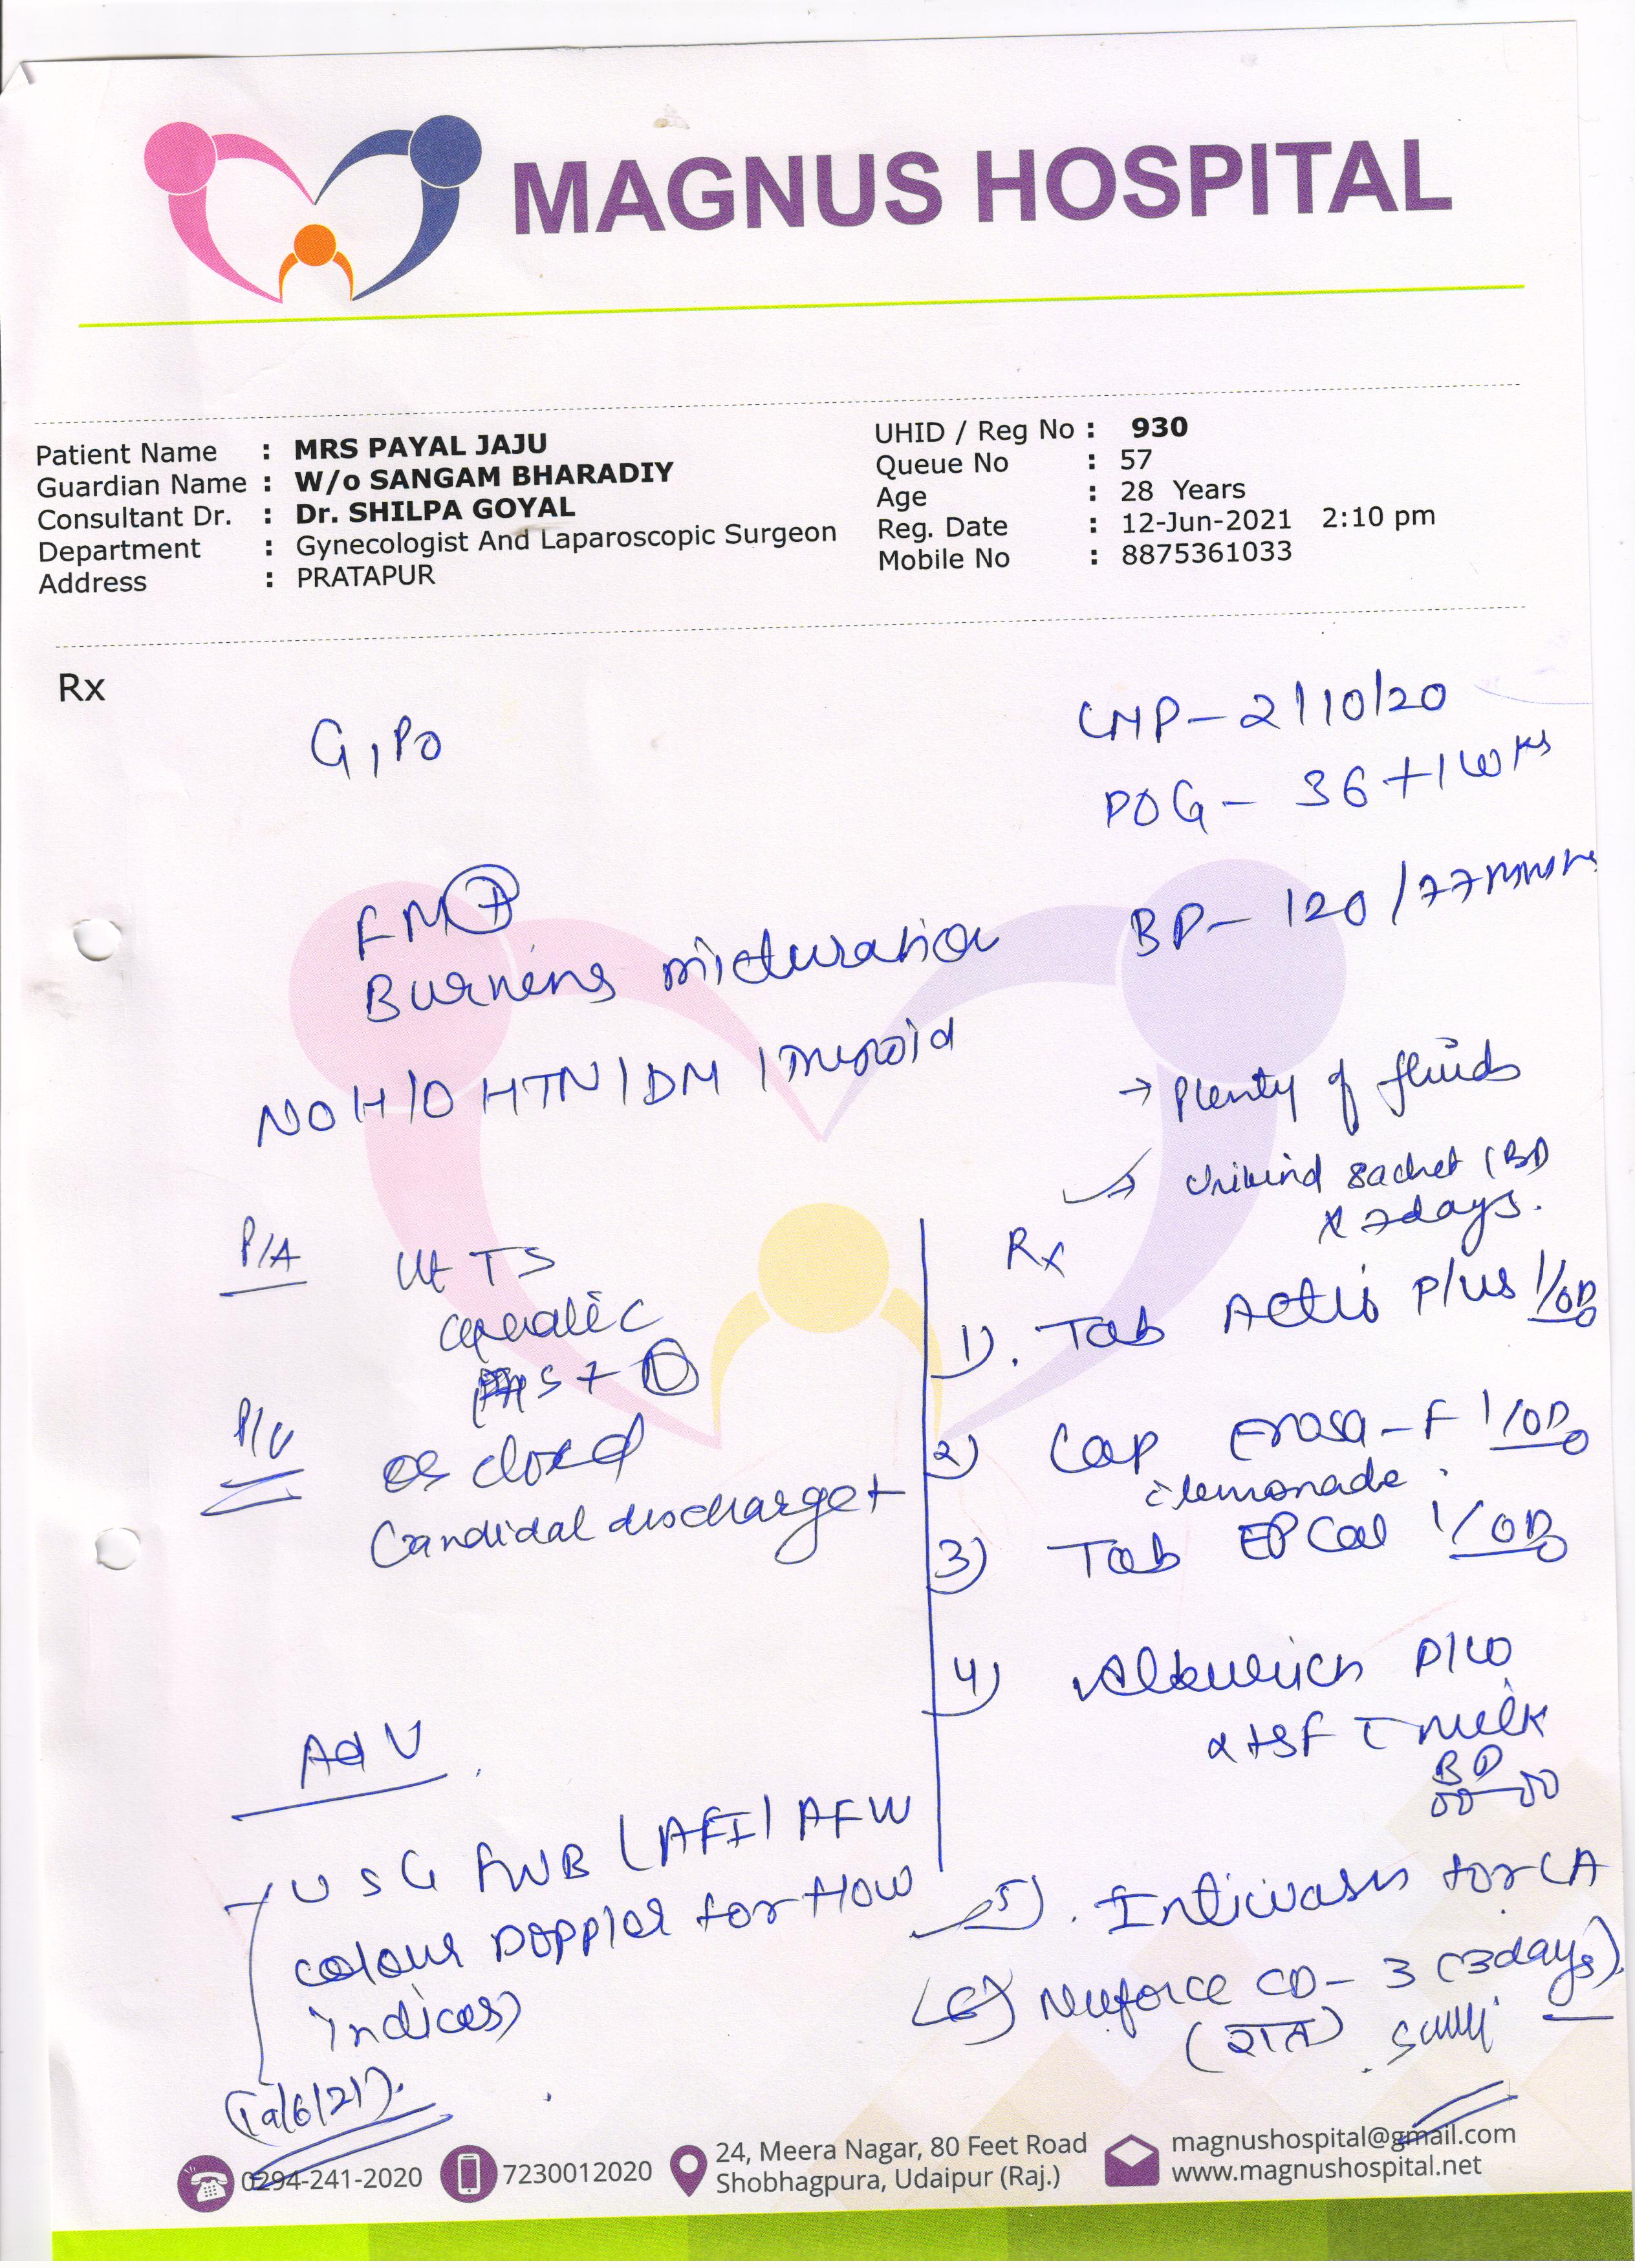 MAGNUS HOSPITAL
Patient Name : MRS PAYAL JAJU
Guardian Name : W/o SANGAM BHARADIY
Consultant Dr. : Dr. SHILPA GOYAL
Department : Gynecologist And Laparoscopic Surgeon
Address : PRATAPUR
UHID / Reg No : 930
Queue No : 57
Age : 28 Years
Reg. Date : 12-Jun-2021 2:10 pm
Mobile No : 8875361033
Rx
G1P0
LMP - 2/10/20
POG - 36+1 wks
BP - 120/77 mmHg
FM +
Burning micturation
NO H/O HTN/DM/Thyroid
→ Plenty of fluids
→ Urikind sachet (BD)
x 7days.
P/A Ut TS
cephalic
P/V os closed
Candidal discharge +
Adv
USG FWB (AFI/AFW
colour Doppler for flow
indices)
Rx
1). Tab Actis plus 1/OD
2) Cap Erosa-F 1/OD
c lemonade.
3) Tab EPCal 1/OD
4)
HSF c milk
BD
5). Intiwash for LA
6) Nuforce CD - 3 (3days).
(रात)
0294-241-2020
7230012020
24, Meera Nagar, 80 Feet Road
Shobhagpura, Udaipur (Raj.)
magnushospital@gmail.com
www.magnushospital.net